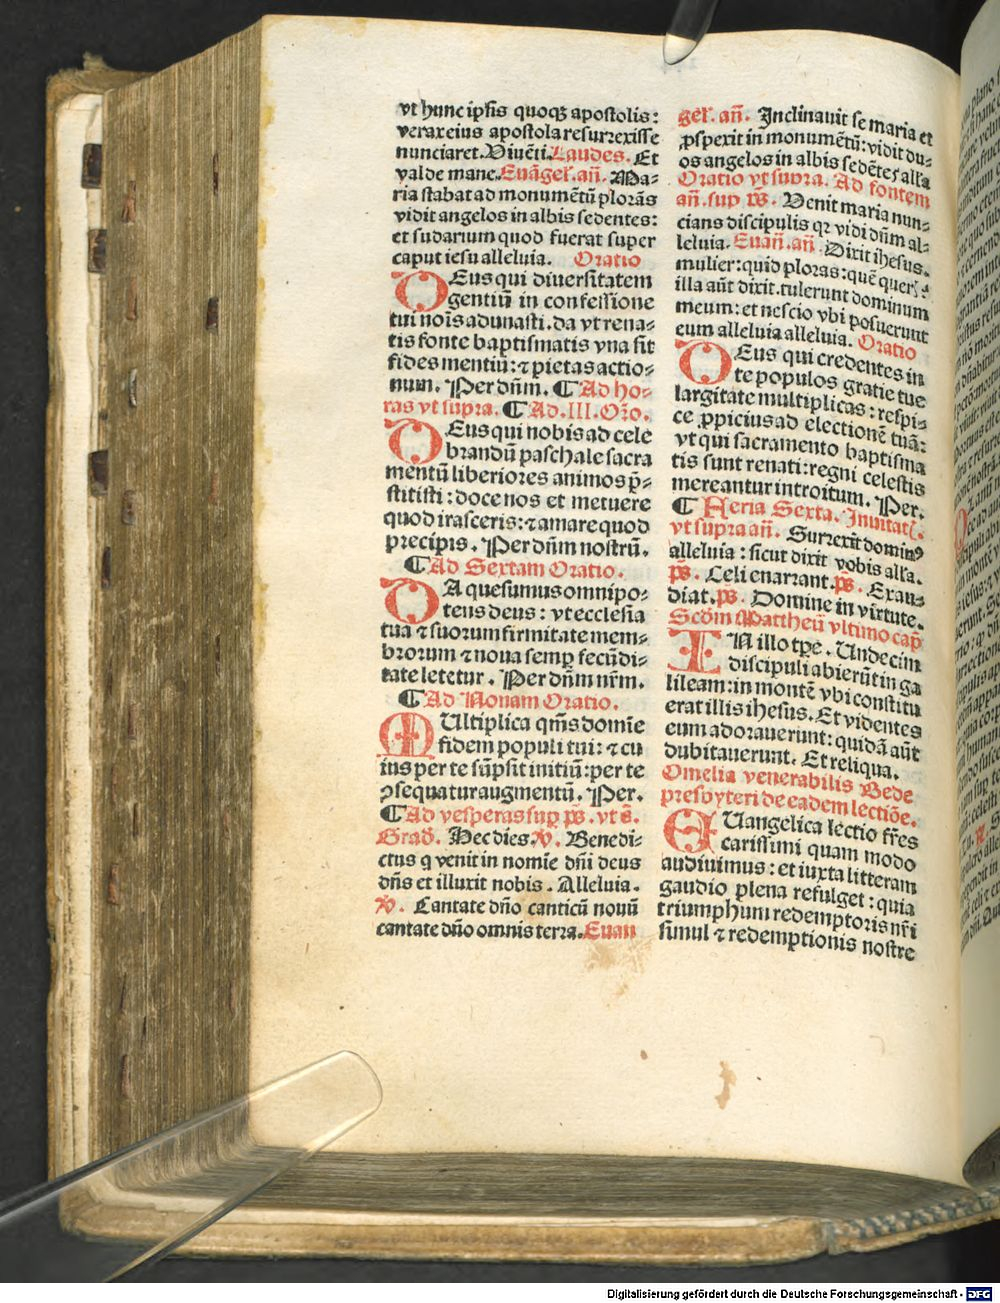 vt hunc ipsis quoqꝫ apostolis:
verax eius apostola resurrexisse
nunciaret. Viuēti. Laudes. Et
valde mane. Euāgel̄. an̄. Ma⸗
ria stabat ad monumētū plorās
vidit angelos in albis sedentes:
et sudarium quod fuerat super
caput iesu alleluia. Oratio
DEus qui diuersitatem
gentiū in confessione
tui noīs adunasti. da vt rena⸗
tis fonte baptismatis vna sit
fides mentiū: ⁊ pietas actio⸗
num. Per dn̄m. ¶ Ad ho⸗
ras vt supra. ¶ Ad. III. Or̄o.
DEus qui nobis ad cele
brandū paschale sacra
mentū liberiores animos p̄⸗
stitisti: doce nos et metuere
quod irasceris: ⁊ amare quod
precipis. Per dn̄m nostrū.
¶ Ad Sextam Oratio.
DA quesumus omnipo⸗
tens deus: vt ecclesia
tua ⁊ suorum firmitate mem⸗
brorum ⁊ noua semꝑ fecūdi⸗
tate letetur. Per dn̄m nr̄m.
¶ Ad Nonam Oratio.
MUltiplica qm̄s domīe
fidem populi tui: ⁊ cu
ius per te sūpsit initiū: per te
ꝯsequatur augmentū. Per.
¶ Ad vesperas suꝑ ps̄. vt s̄.
Grad̄. Hec dies. ℣. Benedi⸗
ctus q venit in nomīe dn̄i deus
dn̄s et illuxit nobis. Alleluia.
℣. Cantate dn̄o canticū nouū
cantate dn̄o omnis terra. Euan
gel̄. an̄. Inclinauit se maria et
ꝓspexit in monumētū: vidit du⸗
os angelos in albis sedētes all'a
Oratio vt supra. Ad fontem
an̄. sup ps̄. Venit maria nun⸗
cians discipulis qꝛ vidi dn̄m al⸗
leluia. Euan̄. an̄. Dixit ihesus.
mulier: quid ploras: quē queris:
illa aūt dixit. tulerunt dominum
meum: et nescio vbi posuerunt
eum alleluia alleluia. Oratio
DEus qui credentes in
te populos gratie tue
largitate multiplicas: respi⸗
ce ꝓpicius ad electionē tuā:
vt qui sacramento baptisma
tis sunt renati: regni celestis
mereantur introitum. Per.
¶ Feria Sexta. Inuitat̄.
vt supra an̄. Surrexit dominꝰ
alleluia: sicut dixit vobis all'a.
ps̄. Celi enarrant. ps̄. Exau⸗
diat. ps̄. Domine in virtute.
Scd̄m Mattheū vltimo cap̄
IN illo tp̄e. Undecim
discipuli abierūt in ga
lileam: in montē vbi constitu
erat illis ihesus. Et videntes
eum adorauerunt: quidā aūt
dubitauerunt. Et reliqua.
Omelia venerabilis Bede
presbyteri de eadem lectiōe.
EUangelica lectio fr̄es
carissimi quam modo
audiuimus: et iuxta litteram
gaudio plena refulget: quia
triumphum redemptoris nr̄i
simul ⁊ redemptionis nostre
Digitalisierung gefördert durch die Deutsche Forschungsgemeinschaft - DFG